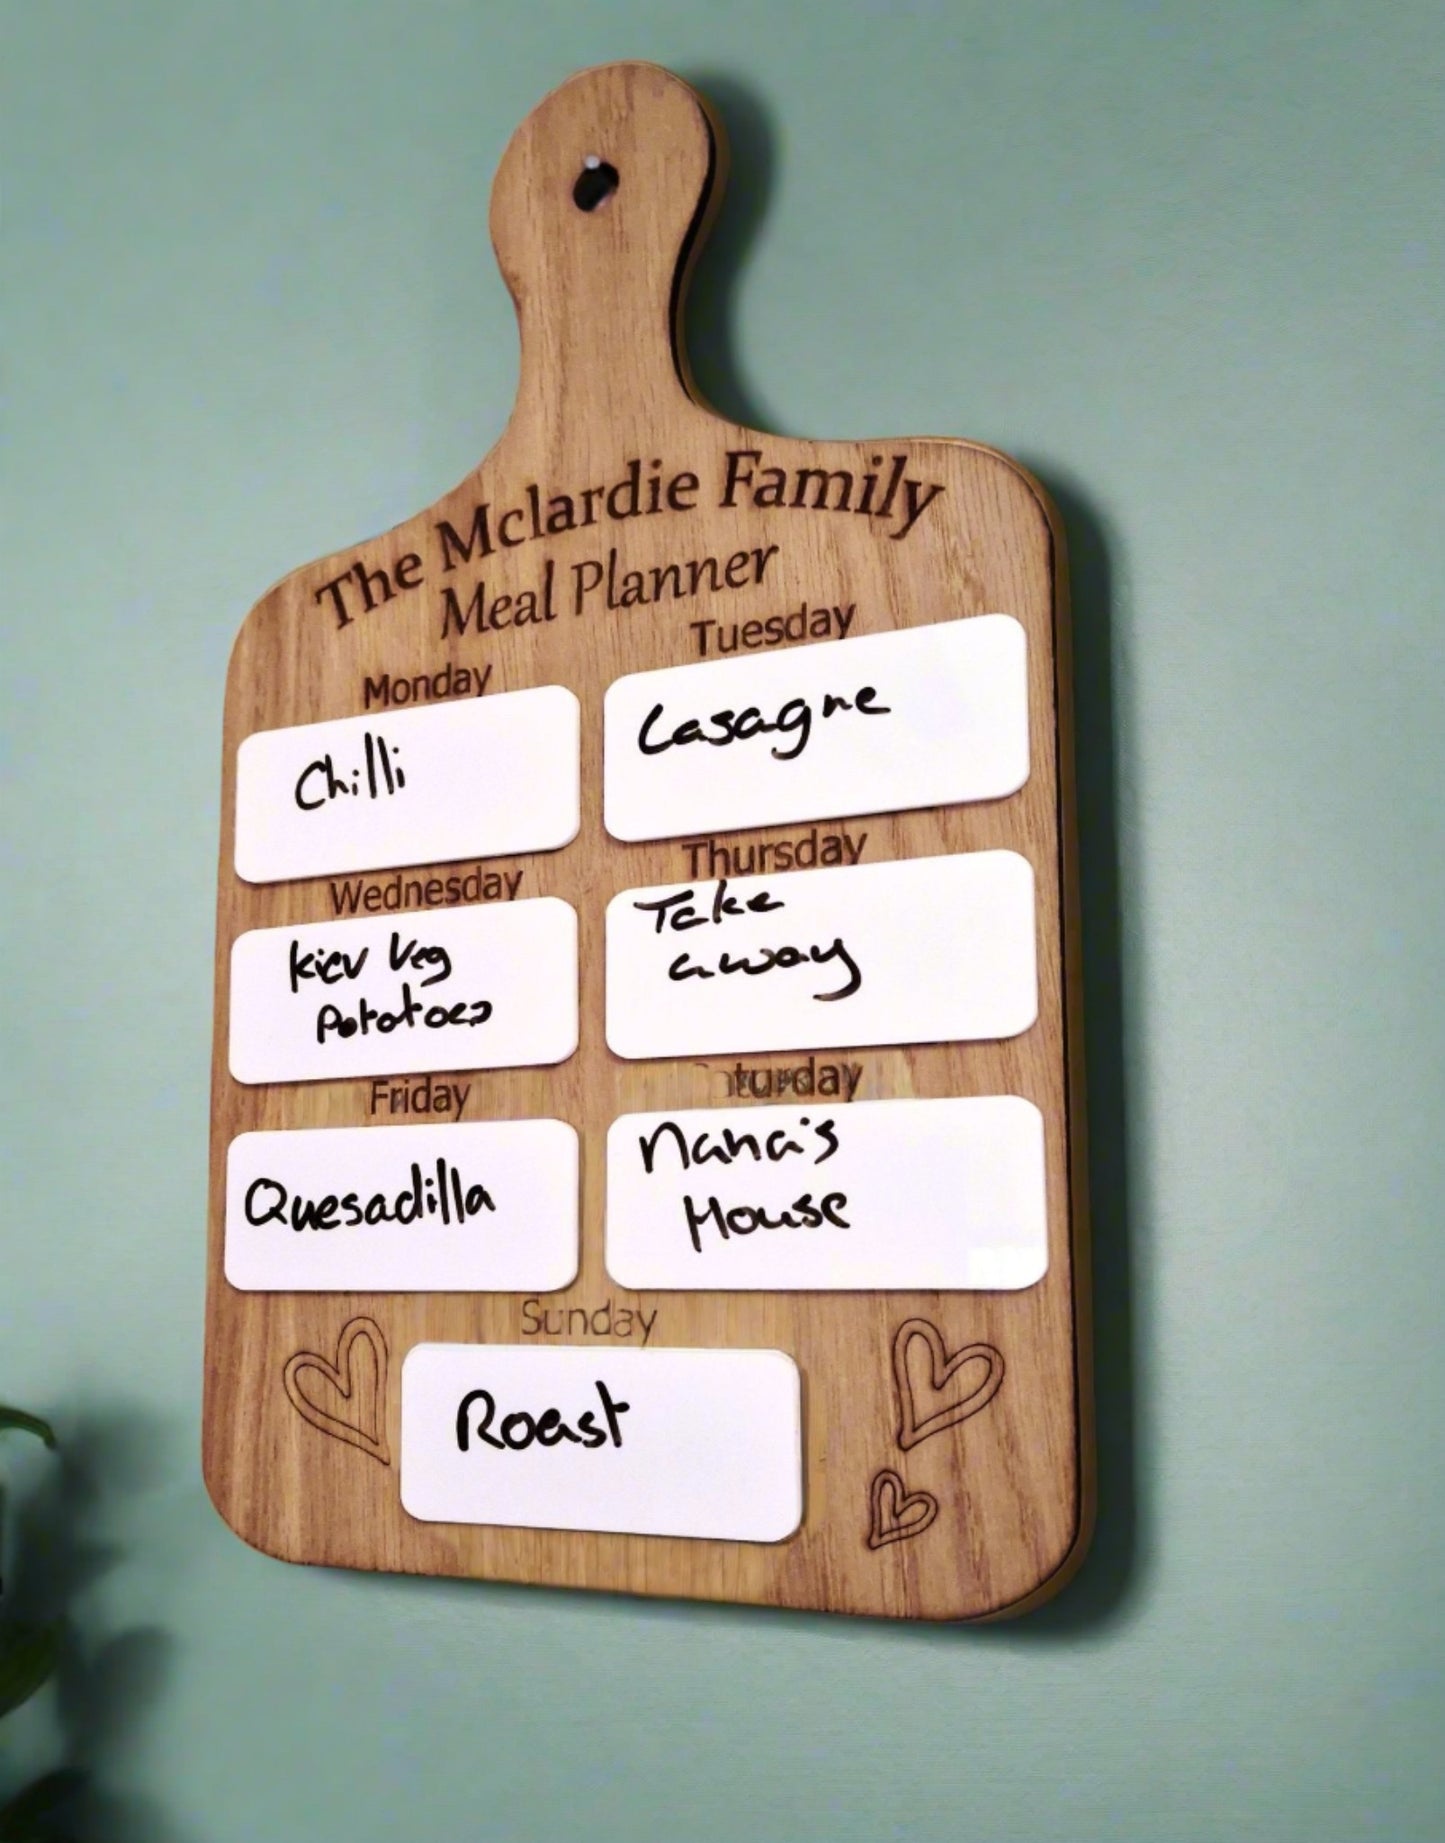 The Mclardie Family
Meal Planner
Monday
Chilli
Tuesday
Lasagne
Wednesday
Kiev Veg
Potatoes
Thursday
Take
away
Friday
Quesadilla
turday
Nana's
House
Sunday
Roast